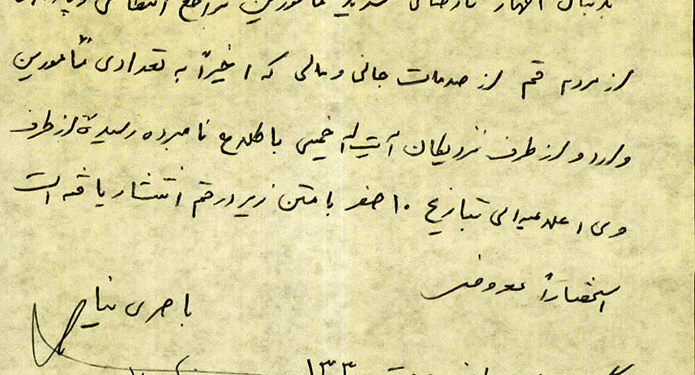 بدنبال اظهار نارضائی شدید مأمورین مراجع انتظامی
از مردم قم از صدمات جانی و مالی که اخیراً به تعدادی مأمورین
وارد و از طرف نزدیکان آیت اله خمینی باطلاع نامبرده رسیده از طرف
وی اعلامیه‌ای بتاریخ ۱۰ صفر با متن زیر در قم انتشار یافته است
استحضاراً معروض
باصری نیا
۱۳۳